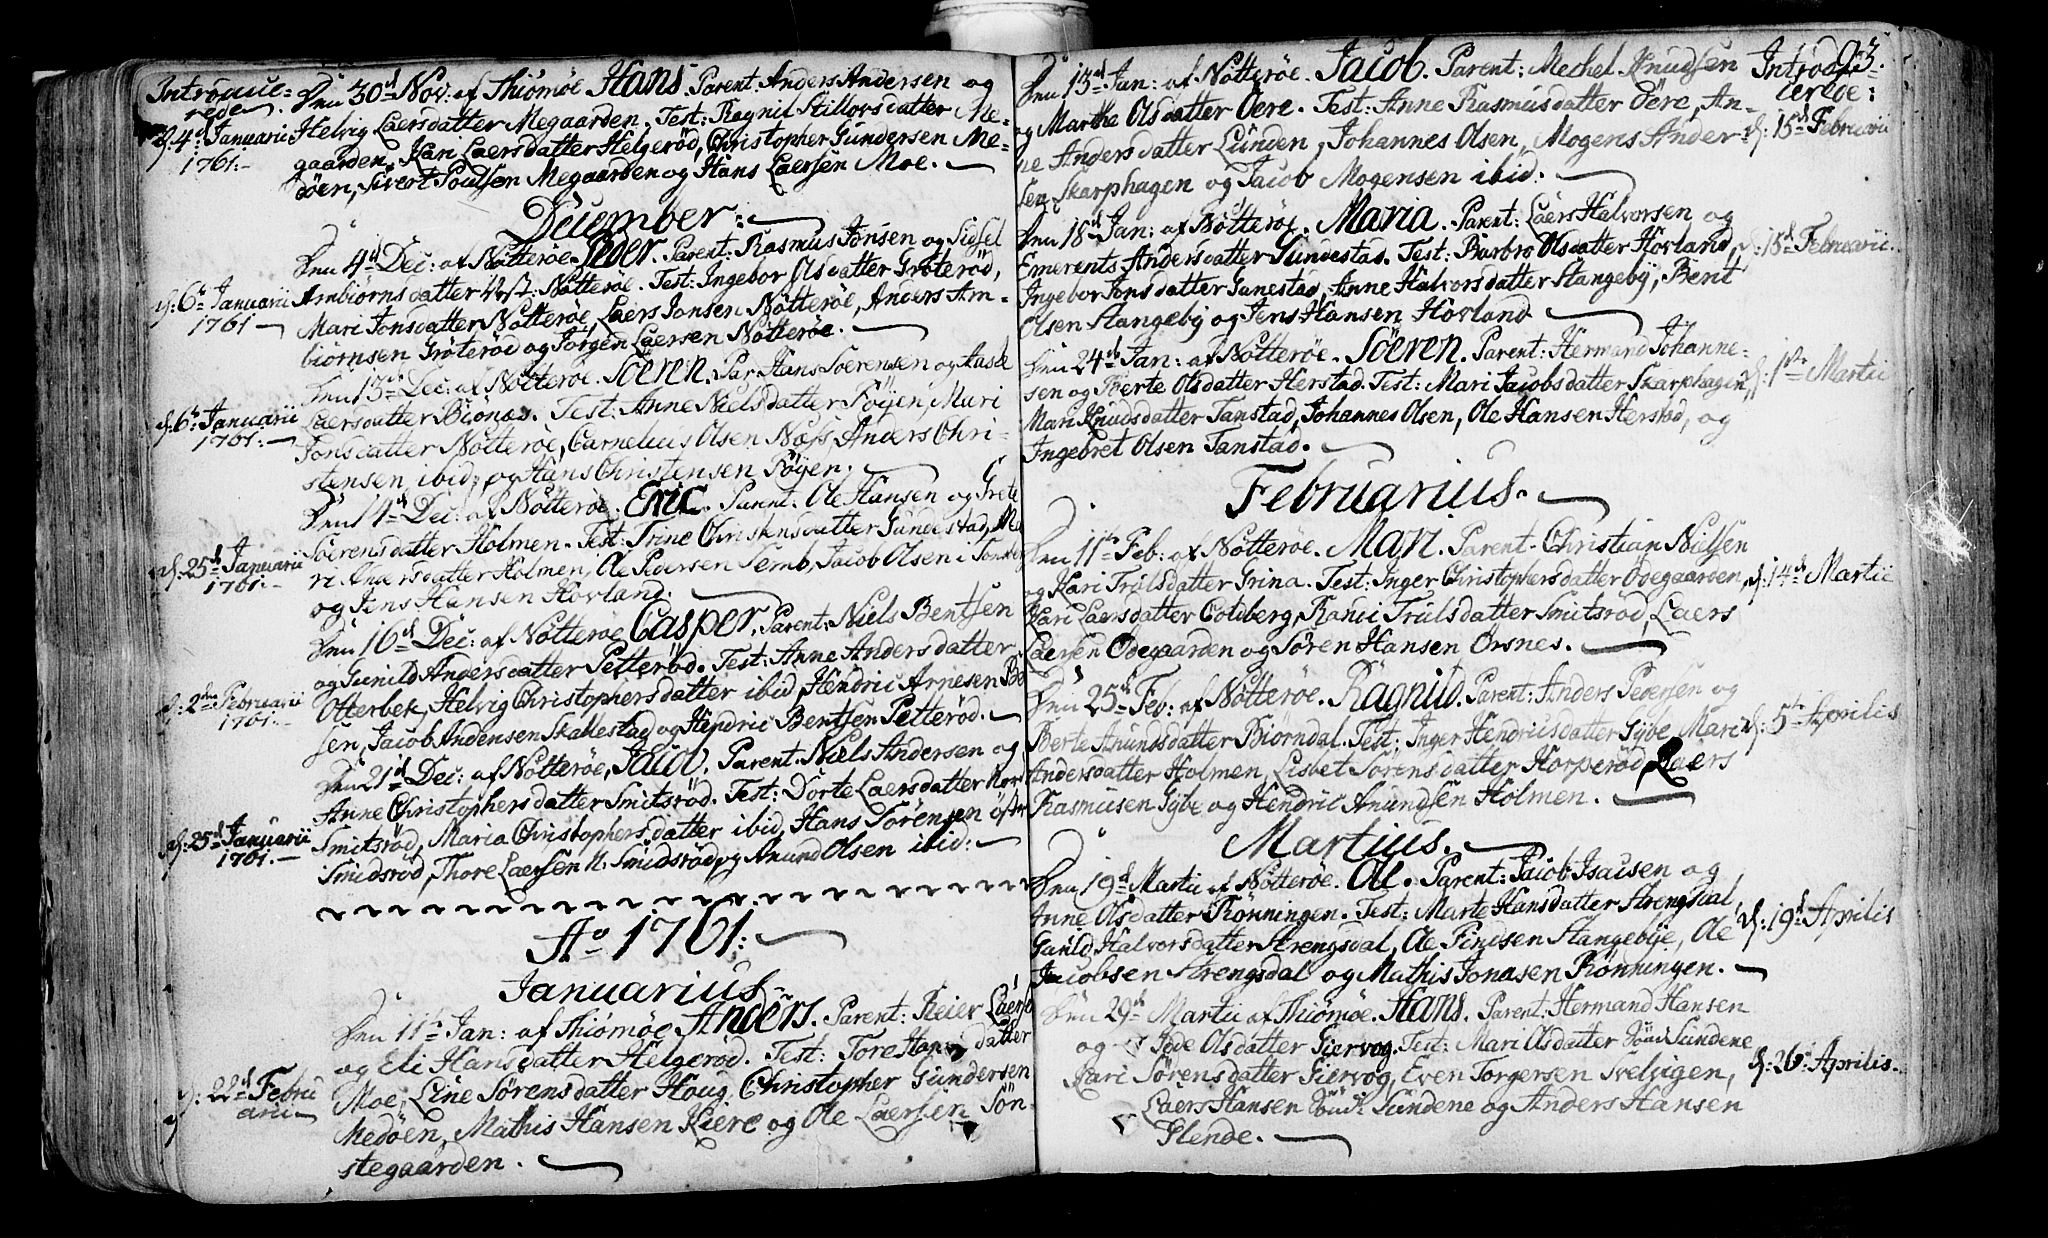 Introduce=
rede
d: 4de Januarii
1761.
Den 30d Nov: af Thiömöe Hans Parent: Anders Andersen og
Helvig Laersdatter Megaarden. Test: Ragnil Stillorsdatter Me=
gaarden, Kari Laersdatter Helgeröd, Christopher Gundersen Me=
döen, Sivert Poulsen Megaarden og Hans Laersen Moe.
December:
d: 6te Januarii
1761
Den 4de Dec: af Nötteröe. Peder. Parent: Rasmus Jonsen og Sidsel
Ambiörnsdatter Nötteröe. Test: Ingebor Olsdatter Gröteröd,
Mari Jonsdatter Nötteröe, Laers Jonsen Nötteröe, Anders Am-
biörnsen Gröteröd og Jörgen Laersen Nötteröe.
d: 6te Januarii
1761.
Den 13de Dec: af Nötteröe. Sören. Par: Hans Soerensen og
Laersdatter Biönnes. Test: Anne Nielsdatter Föyen, Mari
Jonsdatter Nötteröe, Cornelius Olsen Næss, Anders Chri-
stensen ibid: og Hans Christensen Föyen.
d: 25d Januarii
1761.
Den 14de Dec: af Nötteröe. Eric. Parent: Ole Hansen og Grete
Soerensdatter Holmen. Test: Trine Christensdatter Gundestad, Ma
ri Andersdatter Holmen, Ole Pedersen Semb, Jacob Olsen
og Jens Hansen Hovland.
d: 2den Februarii
1761.
Den 16d Dec: af Nötteröe Casper. Parent: Niels Bentsen
og Gunild Andersdatter Petteröd. Test: Anne Andersdatter
Otterbek, Helvig Christophersdatter ibid, Hendric Arnesen
sen, Jacob Andersen Skallestad og Hendric Bentsen Petteröd.
d: 25d Januarii
1761.
Den 21d Dec: af Nötteröe, Jacob. Parent. Niels Andersen og
Anne Christophersdatter Smitsröd. Test: Dorte Laersdatter Nor
Smitsröd, Maria Christophersdatter ibid, Hans Sörensen
Smidsröd, Thore Laersen N: Smidsröd og Anund Olsen ibid:
Ao 1761:
Januarius.
d: 22d Febru
arii
Den 11te Jan: af Thiömöe Anders. Parent: Reier Laers
og Eli Hansdatter Helgeröd. Test: Tore Hans datter
Moe, Line Sörensdatter Houg, Christopher Gundersen
Medöen, Mathis Hansen Kiere og Ole Laersen Sön
stegaarden.
93.
Introdu
cerede:
Den 13d Jan: af Nötteröe. Jacob. Parent: Mechel Knudsen
og Marthe Olsdatter Oere. Test: Anne Rasmusdatter Oere, An-
ne Andersdatter Lunden, Johannes Olsen, Mogens Ander-
sen Skarphagen og Jacob Mogensen ibid:
d: 15d Februarii
Den 18d Jan: af Nötteröe. Maria. Parent: Laers Halvorsen og
Emerents Andersdatter Gundestad. Test: Barbro Olsdatter Hovland,
Ingebor Jonsdatter Gunestad, Anne Halvorsdatter Stangeby, Brent
Olsen Stangeby og Jens Hansen Hovland
d: 15d Februarii.
Den 24de Jan: af Nötteröe. Söeren. Parent: Hermand Johanne=
sen og Berte Olsdatter Herstad. Test: Mari Jacobsdatter Skarphagen
Mari Knudsdatter Tanstad, Johannes Olsen, Ole Hansen Herstad, og
Ingebret Olsen Tanstad.
d: 1ste Martii
Februarius.
Den 11te Feb: af Nötteröe. Mari. Parent. Christian Nielsen
og Kari Trolsdatter Grina. Test: Inger Christophersdatter Ödegaarden,
Kari Laersdatter Colsberg, Ranei Trulsdatter Smitsröd, Laers
Laersen Ödegaarden og Sören Hansen Orsnes.
d: 14d Martii
Den 25d Feb: af Nötteröe. Ragnild. Parent: Anders Pedersen og
Berte Anundsdatter Biörndal. Test: Inger Hendricsdatter Gybe, Mari
Andersdatter Holmen, Lisbet Sörensdatter Horperöd, Laers
Rasmusen Gybe og Hendric Anundsen Holmen.
d: 5te Aprilis
Martius.
Den 19d Martii af Nötteröe. Ole. Parent: Jacob Isacsen og
Anne Olsdatter Rönningen. Test: Marte Hansdatter Strengsdal,
Gunild Halvorsdatter Strengsdal, Ole Findsen Stangebye, Ole
Jacobsen Strengsdal og Mathis Jonasen Rönningen.
d: 19d Aprilis
Den 29de Martii af Thiömöe. Hans. Parent: Hermand Hansen
og Idde Olsdatter Giervog. Test: Mari Olsdatter Sundene
Kari Sörensdatter Giervog, Even Torgersen Svelvigen,
Laers Hansen Sundene og Anders Hansen
Glende.
d: 26de Aprilis.